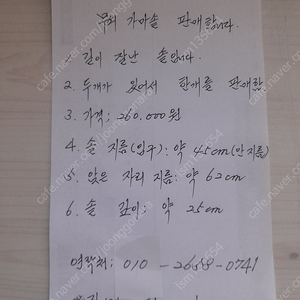 무쇠 가마솥 판매합니다.
1. 길이 잘난 솥입니다.
2. 두개가 있어서 한개를 판매함
3. 가격: 260.000원
4. 솥 지름(입구): 약 45cm(안지름)
5. 앉은 자리 지름: 약 62cm
6. 솥 깊이: 약 25cm
연락처: 010 - 2688 - 0741